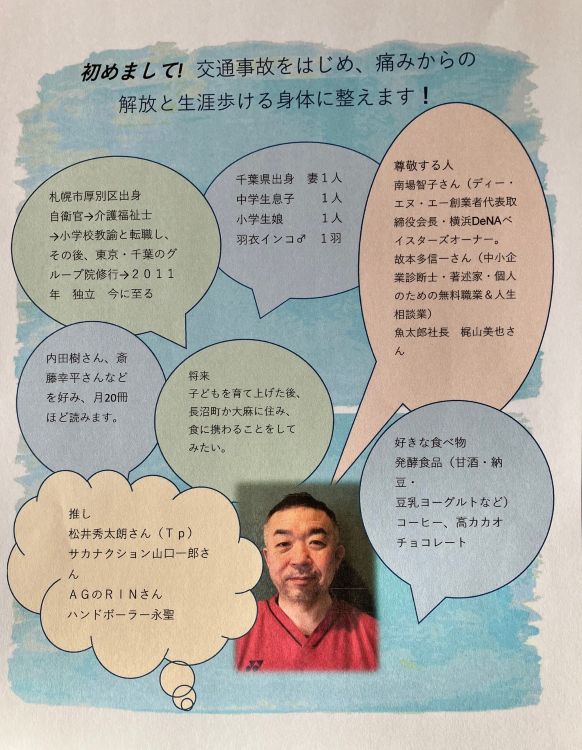 初めまして! 交通事故をはじめ、痛みからの
解放と生涯歩ける身体に整えます！
札幌市厚別区出身
自衛官→介護福祉士
→小学校教諭と転職し、
その後、東京・千葉のグ
ループ院修行→２０１１
年　独立　今に至る
千葉県出身　妻１人
中学生息子　　１人
小学生娘　　　１人
羽衣インコ♂　１羽
尊敬する人
南場智子さん（ディー・
エヌ・エー創業者代表取
締役会長・横浜DeNAベ
イスターズオーナー。
故本多信一さん（中小企
業診断士・著述家・個人
のための無料職業＆人生
相談業）
魚太郎社長　梶山美也さ
ん
内田樹さん、斎
藤幸平さんなど
を好み、月20冊
ほど読みます。
将来
子どもを育て上げた後、
長沼町か大麻に住み、
食に携わることをして
みたい。
好きな食べ物
発酵食品（甘酒・納
豆・
豆乳ヨーグルトなど）
コーヒー、高カカオ
チョコレート
推し
松井秀太朗さん（Ｔｐ）
サカナクション山口一郎さ
ん
ＡＧのＲＩＮさん
ハンドボーラー永聖
YONEX